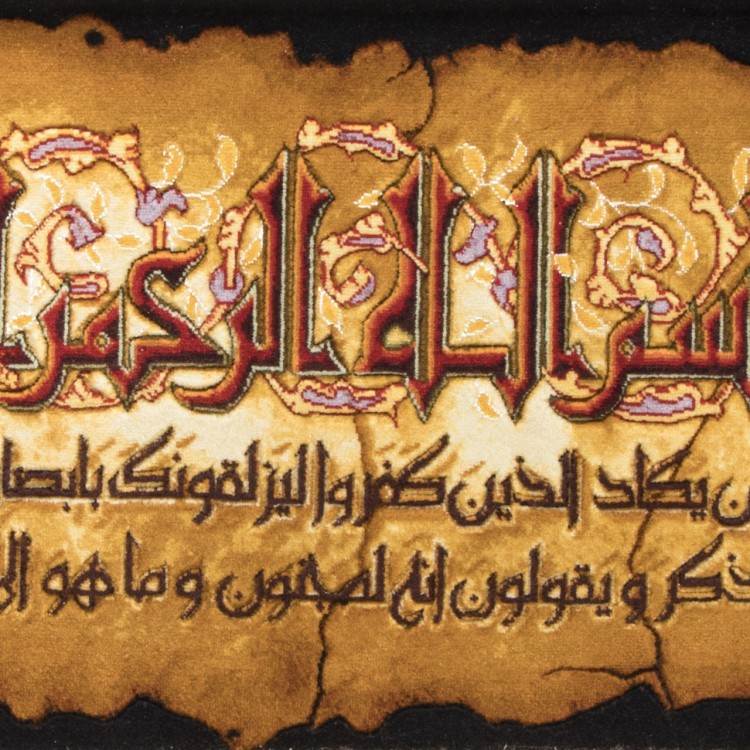 سم الله الرحمن
ن یکاد الذین کفروا لیزلقونک بابصا
ذکر و یقولون انه لمجنون و ما هو الا